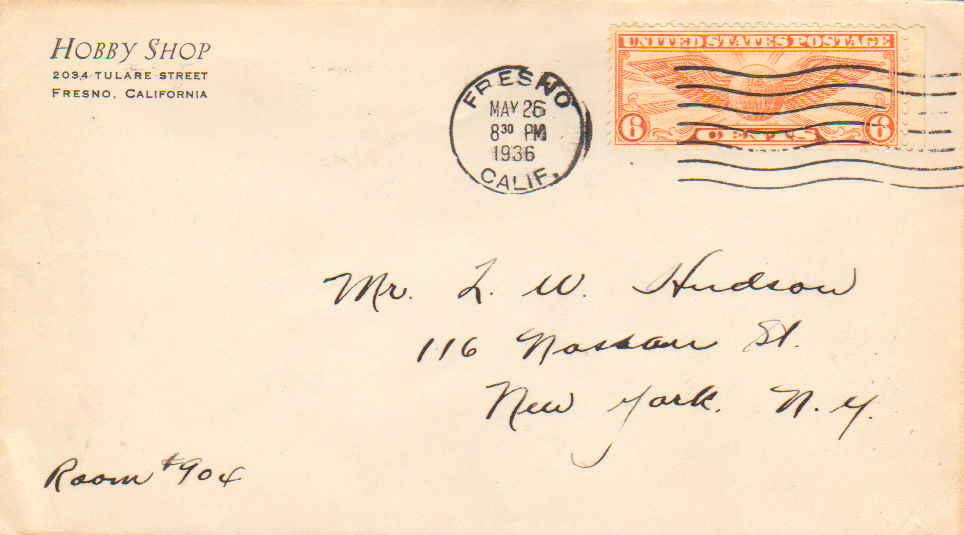 HOBBY SHOP
2034 TULARE STREET
FRESNO, CALIFORNIA
FRESNO
MAY 26
8 30 PM
1936
CALIF.
UNITED STATES POSTAGE
6 CENTS 6
Mr. L. W. Hudson
116 Nassau St.
New York, N. Y.
Room #904